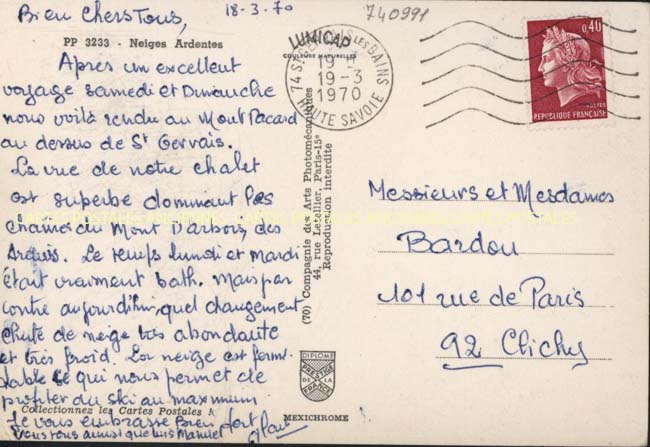 Bien Chers Tous, 18-3.70
740991
PP 3233 - Neiges Ardentes
LUMICAP
COULEURS NATURELLES
Après un excellent
voyage samedi et Dimanche
nous voilà rendu au Mont Pacard
au dessus de St Gervais.
La vue de notre chalet
est superbe dominant les
chaines du Mont D'arbois, des
Aravis. Le temps lundi et mardi
était vraiment bath. Mais par
contre aujourd'hui, quel changement,
chute de neige très abondante
et très froid. La neige est formi-
dable ce qui nous permet de
profiter du ski au maximum
Je vous embrasse Bien fort
vous tous ainsi que
Collectionnez les Cartes Postales
(70) Compagnie des Arts Photomécaniques
44, rue Letellier, Paris-15e
Reproduction Interdite
DIPLOME
PRESTIGE
DE LA
FRANCE
MEXICHROME
74 ST GERVAIS LES BAINS
19-3
1970
HAUTE SAVOIE
0,40
POSTES
REPUBLIQUE FRANÇAISE
Messieurs et Mesdames
Bardou
101 rue de Paris
92 Clichy